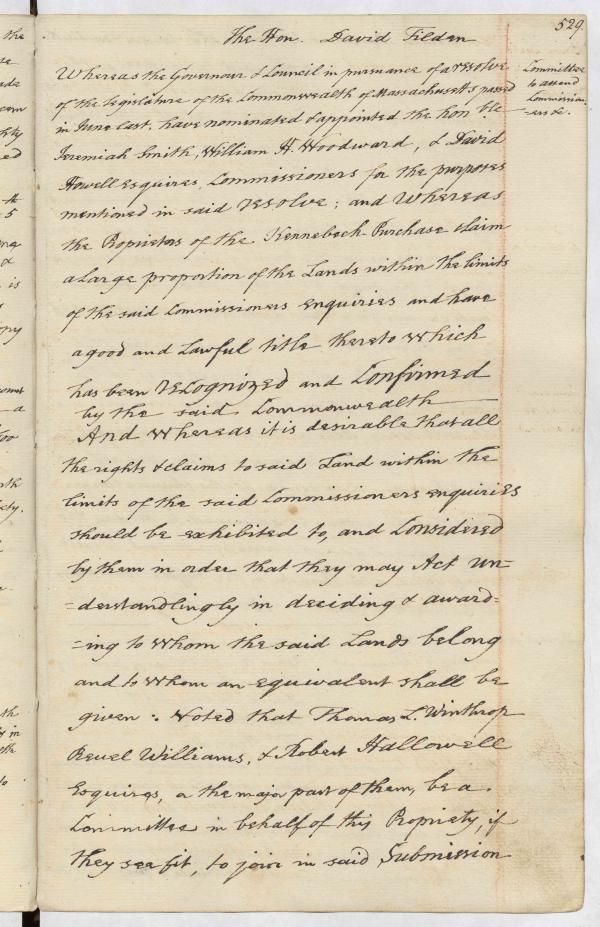 529.
The Hon. David Tilden
Committee
to attend
Commission
-ers &c.
Whereas the Governour & Council in pursuance of a resolve
of the Legislature of the Commonwealth of Massachusetts passed
in June last, have nominated & appointed the hon.ble
Jeremiah Smith, William H. Woodward, & David
Howell Esquires, Commissioners for the purposes
mentioned in said resolve; and Whereas
the Proprietors of the Kennebeck Purchase claim
a large proportion of the Lands within the limits
of the said Commissioners enquiries and have
a good and Lawful title thereto which
has been recognized and Confirmed
by the said Commonwealth
And whereas it is desirable that all
the rights & claims to said Land within the
limits of the said Commissioners enquiries
should be exhibited to, and Considered
by them in order that they may Act un=
=derstandlingly in deciding & award=
=ing to whom the said Lands belong
and to whom an equivalent shall be
given: Voted that Thomas L. Winthrop
Reuel Williams, & Robert Hallowell
Esquires, or the major part of them, be a
Committee in behalf of this Propriety, if
they see fit, to join in said Submission